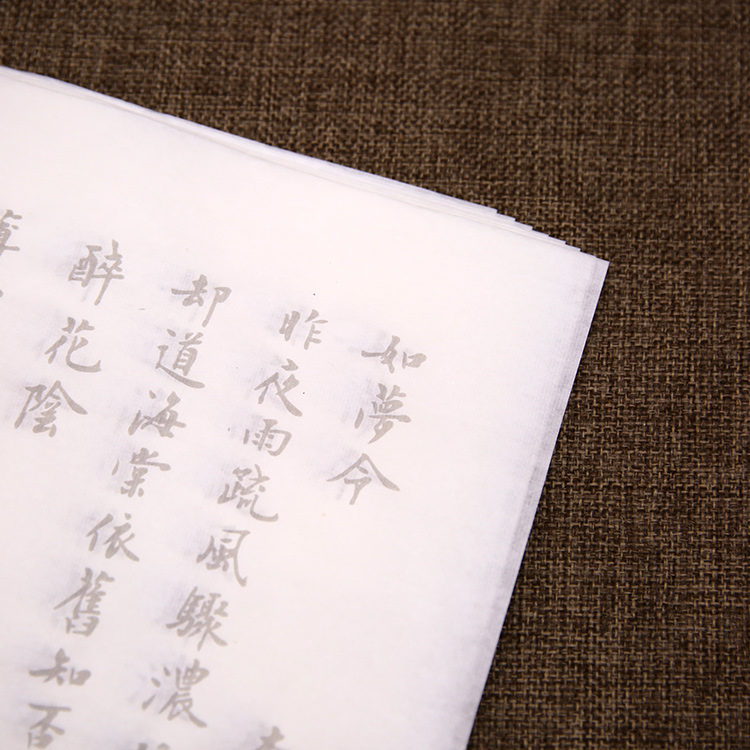 如夢令
昨夜雨疏風驟濃
却道海棠依舊知否
醉花陰